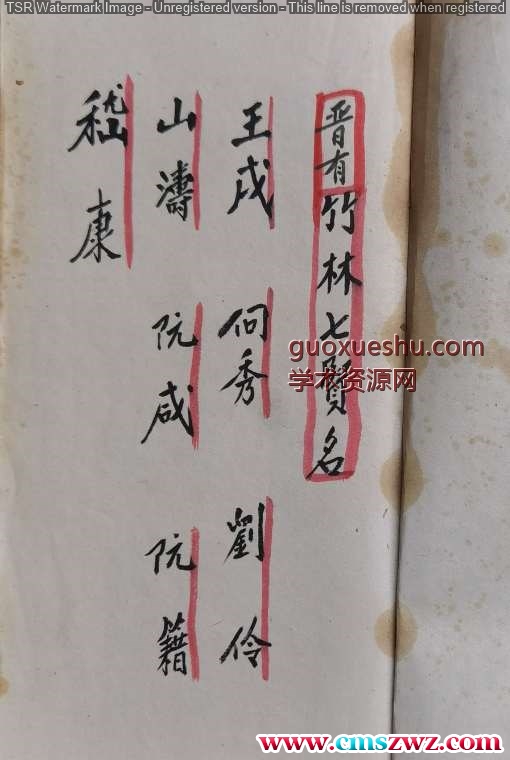 TSR Watermark Image - Unregistered version - This line is removed when registered
晋有竹林七賢名
王戌 向秀 劉伶
山濤 阮咸 阮籍
嵇康
guoxueshu.com
学术资源网
www.cmszwz.com